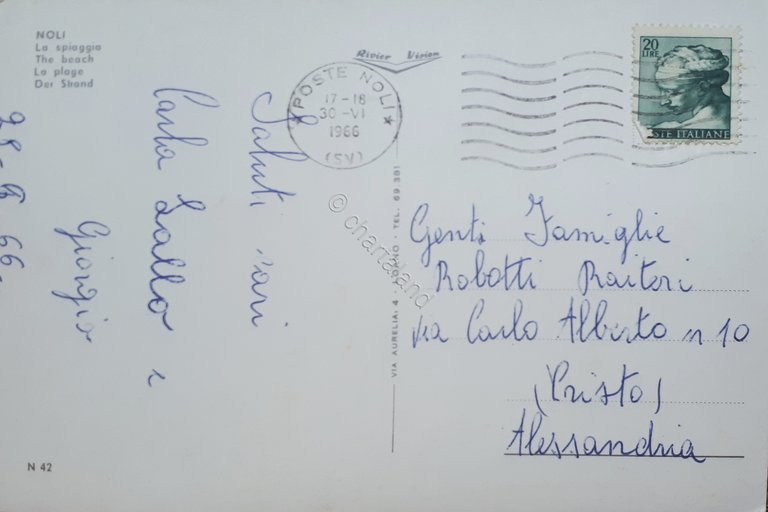 NOLI
La spiaggia
The beach
La plage
Der Strand
Rivier Vision
POSTE NOLI
17-18
30-VI
1966
(SV)
20
LIRE
STE ITALIANE
Saluti cari
Carla Lallo e
Giorgio
66
© chartaland
VIA AURELIA, 4 - TEL. 69.381
Genti Famiglie
Robotti Raiteri
via Carlo Alberto n 10
(Cristo)
Alessandria
N 42